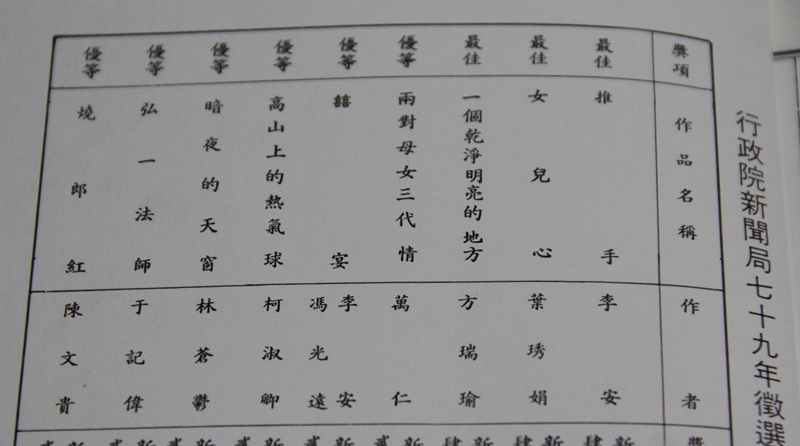 行政院新聞局七十九年徵選
獎項
作品名稱
作者
獎
最佳
推手
李安
新
肆
最佳
女兒心
葉琇娟
新
肆
最佳
一個乾淨明亮的地方
方瑞瑜
新
肆
優等
兩對母女三代情
萬仁
新
貳
優等
囍宴
李安
馮光遠
新
貳
優等
高山上的熱氣球
柯淑卿
新
貳
優等
暗夜的天窗
林蒼鬱
新
貳
優等
弘一法師
于記偉
新
貳
優等
燒郎紅
陳文貴
新
貳